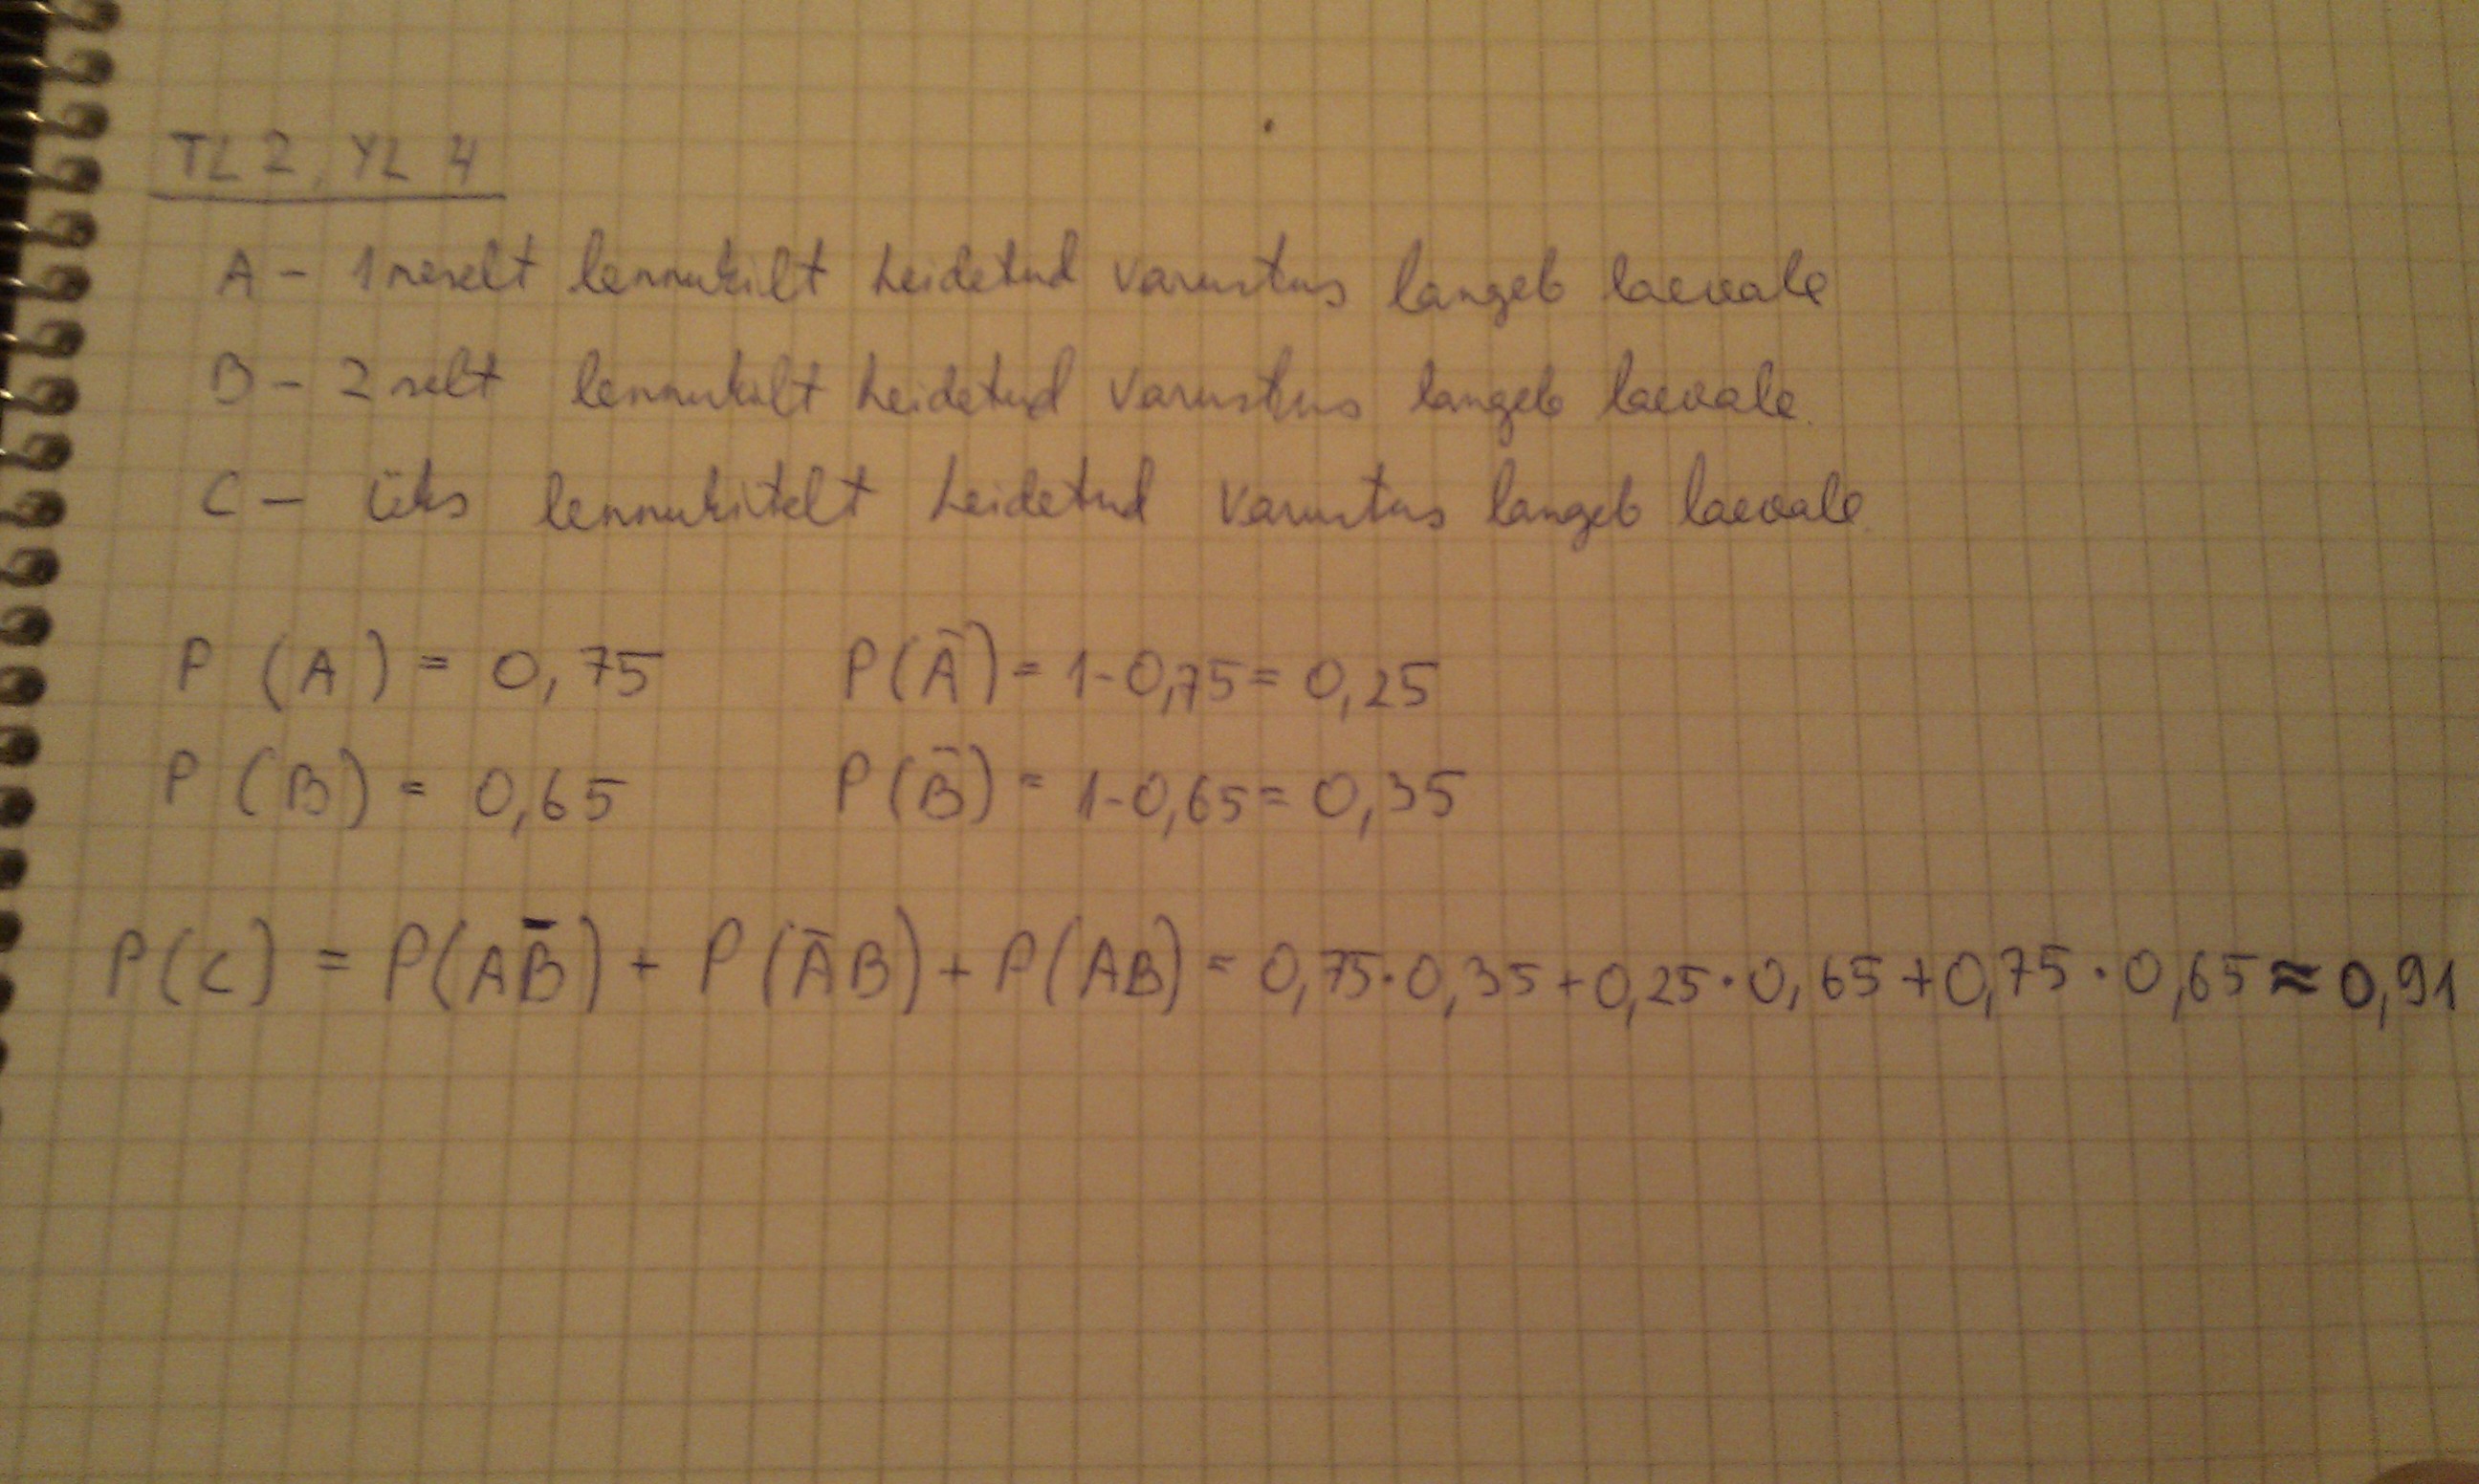 TL 2, YL 4
A - 1 neselt lennukilt heidetud varustus langeb laevale
B - 2 selt lennukilt heidetud varustus langeb laevale.
C - üks lennukitelt heidetud varustus langeb laevale.
P (A) = 0,75 P(Ā) = 1-0,75 = 0,25
P (B) = 0,65 P(B̄) = 1-0,65 = 0,35
P(C) = P(AB̄) + P(ĀB) + P(AB) = 0,75·0,35+0,25·0,65+0,75·0,65≈0,91